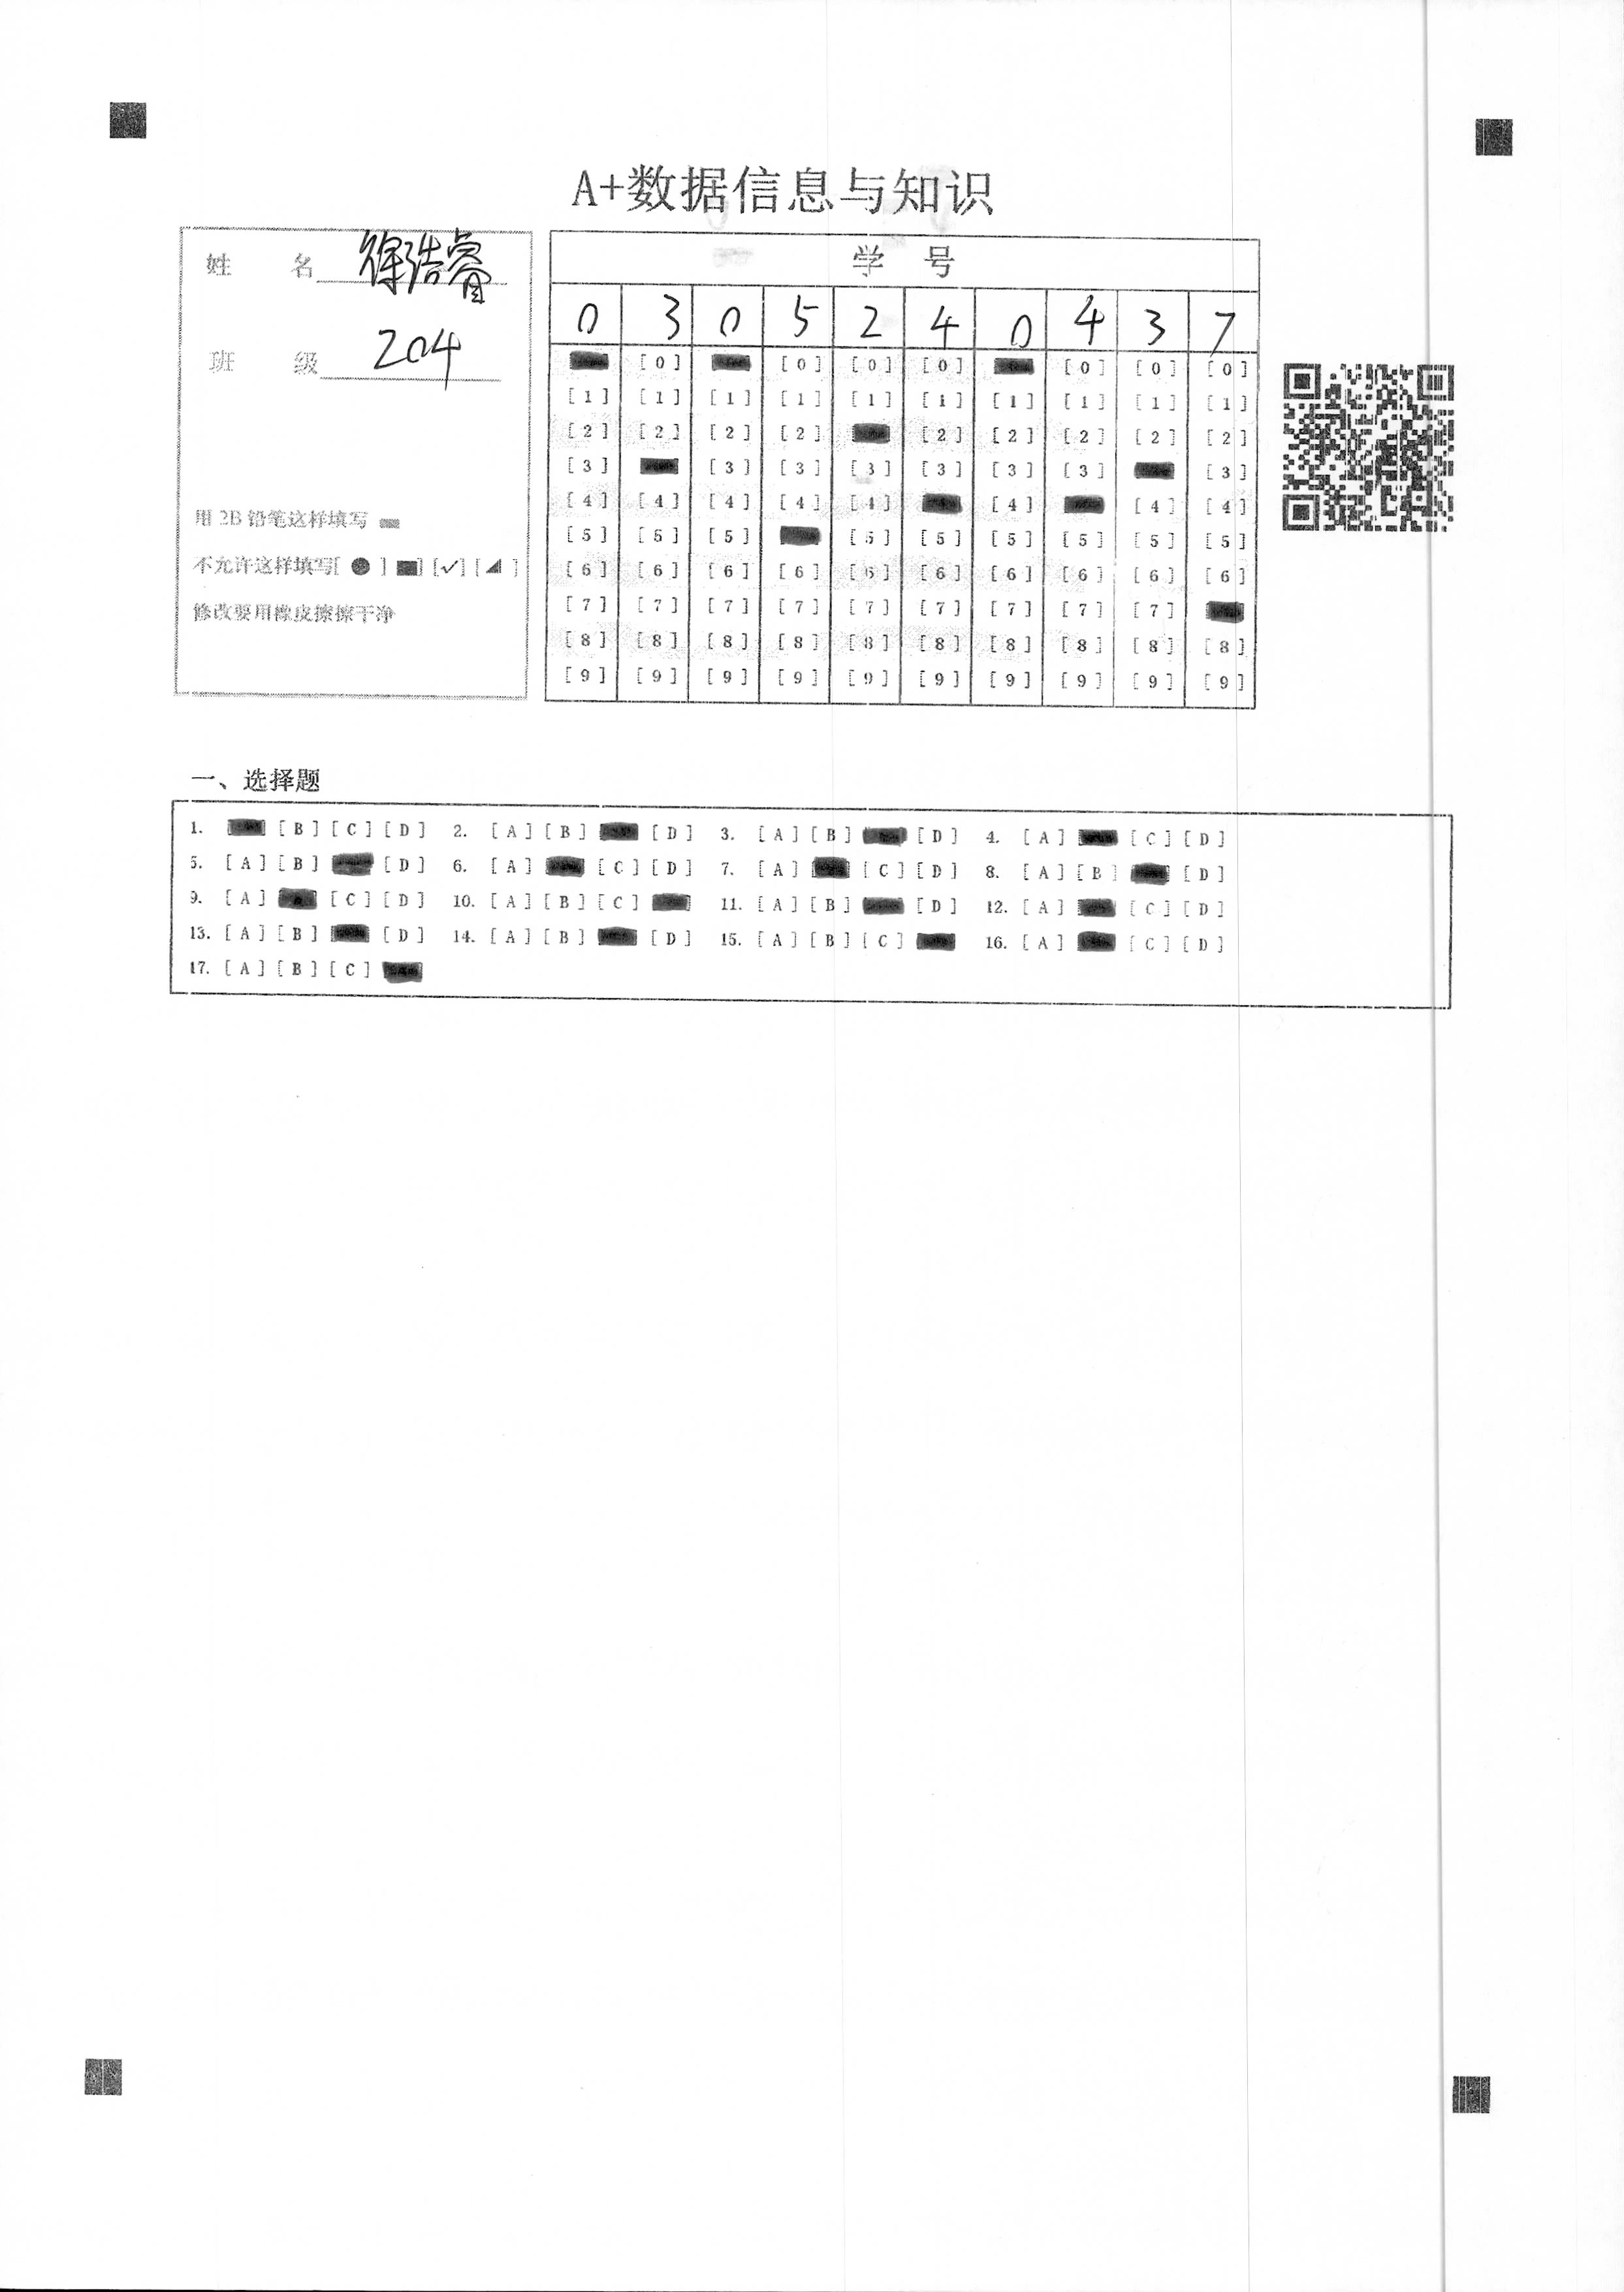 A+数据信息与知识
姓 名 徐浩睿
班 级 204
用 2B 铅笔这样填写
不允许这样填写[ ● ] ■] [✓] [◢ ]
修改要用橡皮擦擦干净
学 号
0 3 0 5 2 4 0 4 3 7
[0] [0] [0] [0] [0] [0] [0]
[1] [1] [1] [1] [1] [1] [1] [1] [1] [1]
[2] [2] [2] [2] [2] [2] [2] [2] [2]
[3] [3] [3] [3] [3] [3] [3] [3]
[4] [4] [4] [4] [4] [4] [4] [4]
[5] [5] [5] [5] [5] [5] [5] [5] [5]
[6] [6] [6] [6] [6] [6] [6] [6] [6] [6]
[7] [7] [7] [7] [7] [7] [7] [7] [7]
[8] [8] [8] [8] [8] [8] [8] [8] [8] [8]
[9] [9] [9] [9] [9] [9] [9] [9] [9] [9]
一、选择题
1. [B] [C] [D] 2. [A] [B] [D] 3. [A] [B] [D] 4. [A] [C] [D]
5. [A] [B] [D] 6. [A] [C] [D] 7. [A] [C] [D] 8. [A] [B] [D]
9. [A] [C] [D] 10. [A] [B] [C] 11. [A] [B] [D] 12. [A] [C] [D]
13. [A] [B] [D] 14. [A] [B] [D] 15. [A] [B] [C] 16. [A] [C] [D]
17. [A] [B] [C]